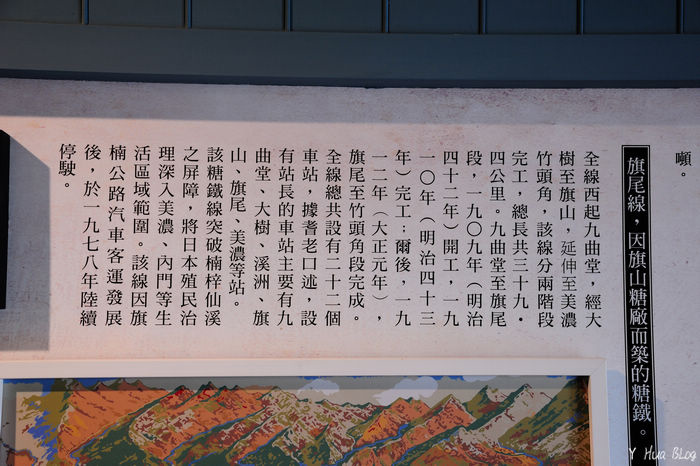 噸。
旗尾線，因旗山糖廠而築的糖鐵。
全線西起九曲堂，經大
樹至旗山，延伸至美濃
竹頭角，該線分兩階段
完工，總長共三十九·
四公里。九曲堂至旗尾
段，一九〇九年（明治
四十二年）開工，一九
一〇年（明治四十三
年）完工；爾後，一九
一二年（大正元年），
旗尾至竹頭角段完成。
全線總共設有二十二個
車站，據耆老口述，設
有站長的車站主要有九
曲堂、大樹、溪洲、旗
山、旗尾、美濃等站。
該糖鐵線突破楠梓仙溪
之屏障，將日本殖民治
理深入美濃、內門等生
活區域範圍。該線因旗
楠公路汽車客運發展
後，於一九七八年陸續
停駛。
Y Hua Blog